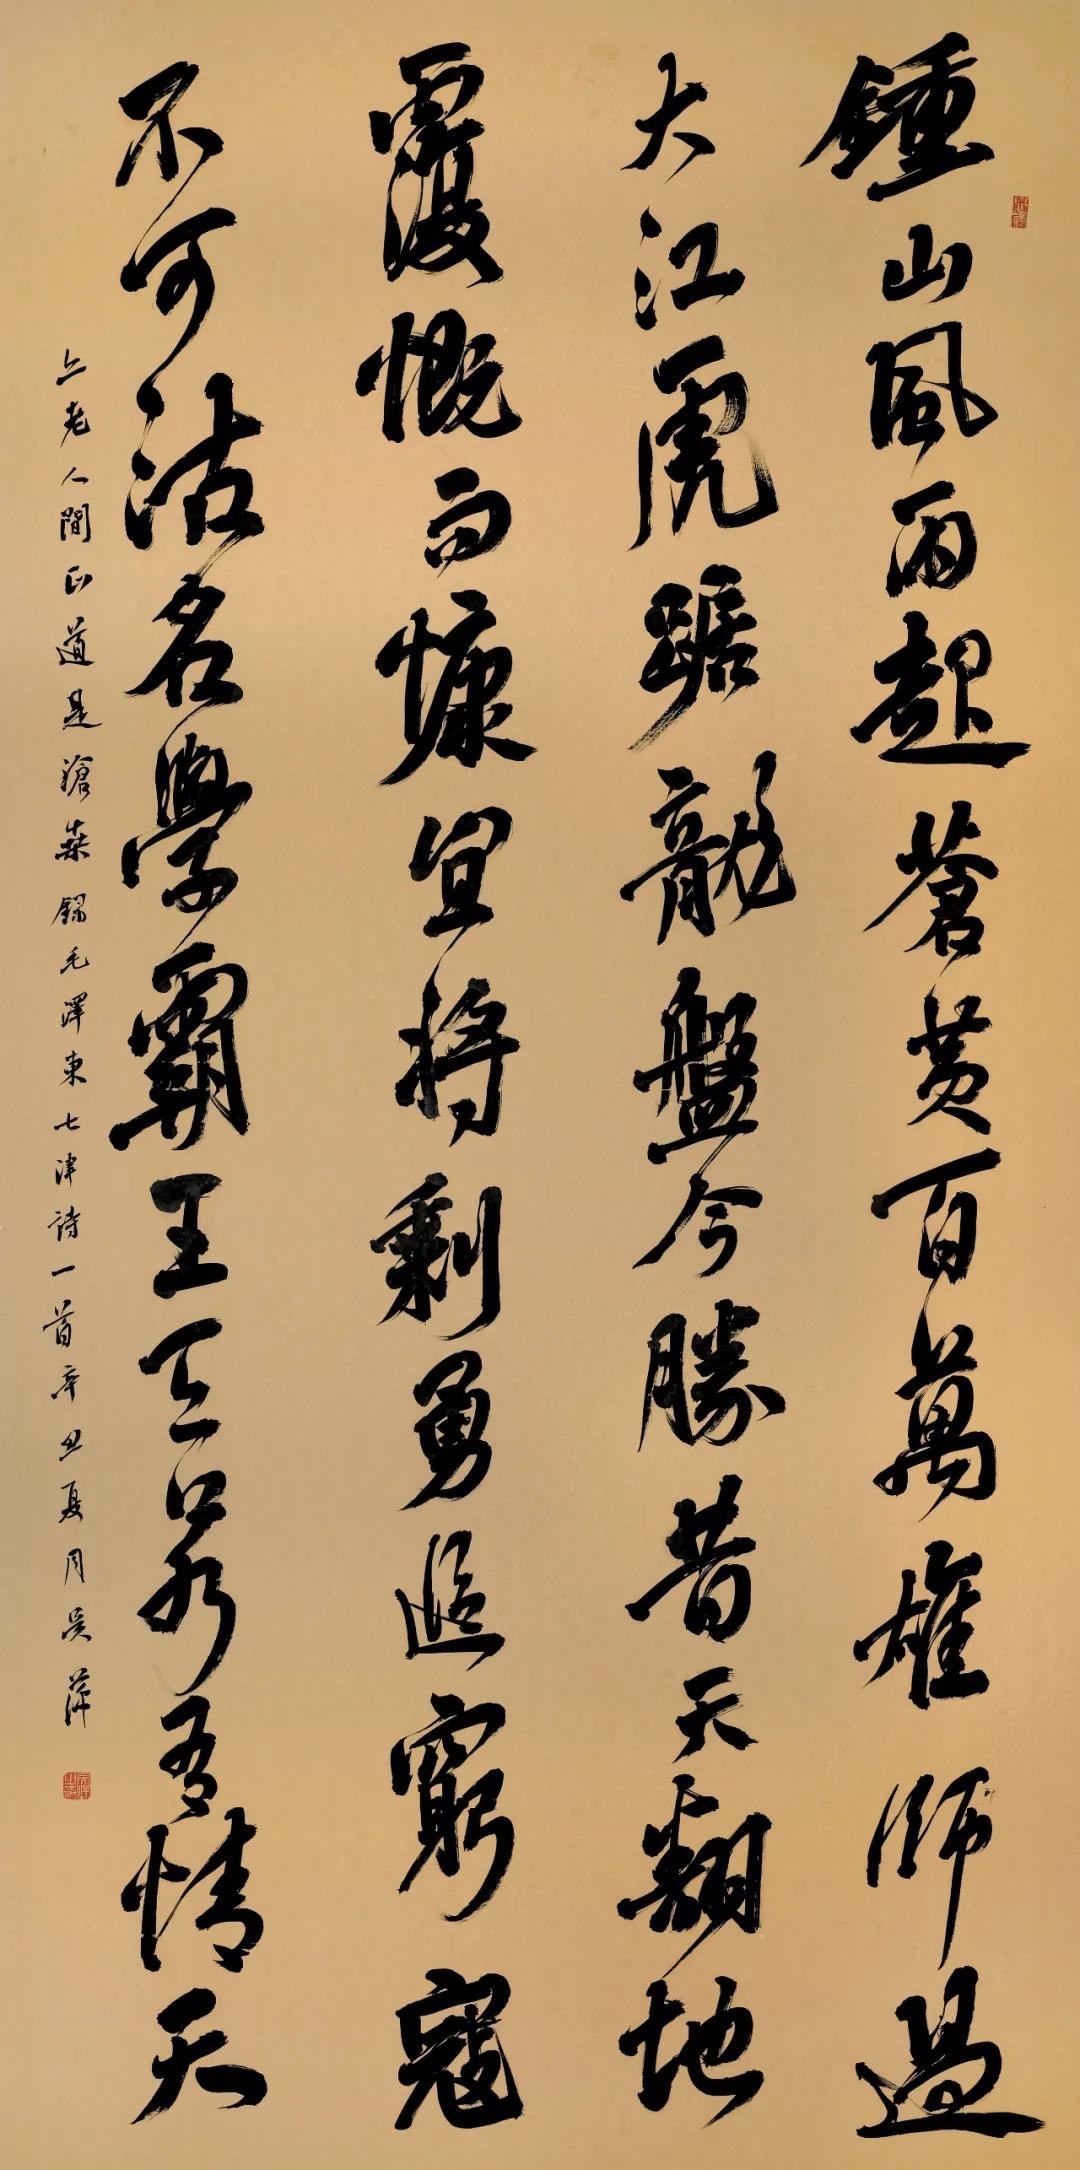 鍾山風雨起蒼黃百萬雄師過
大江虎踞龍盤今勝昔天翻地
覆慨而慷宜將剩勇追窮寇
不可沽名學霸王天若有情天
亦老人間正道是滄桑錄毛澤東七律詩一首辛丑夏月吳萍